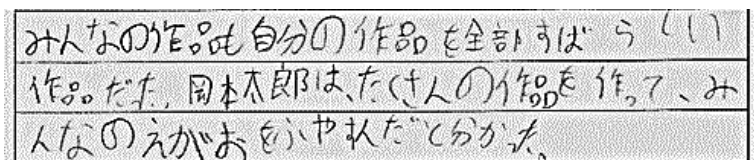 みんなの作品も自分の作品を全部すばらしい
作品だた。岡本太郎は、たくさんの作品を作って、み
んなのえがおをふやすんだと分かった。